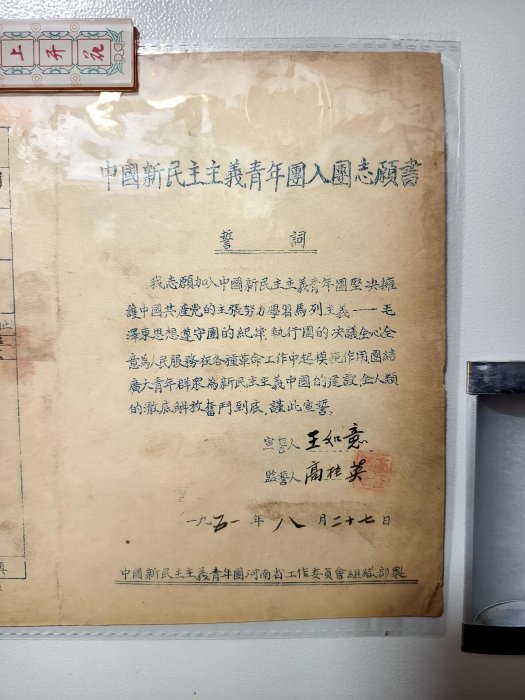 上开花
中國新民主主義青年團入團志願書
誓詞
我志願加入中國新民主主義青年團堅决擁
護中國共產党的主張努力學習馬列主義——毛
澤東思想遵守團的紀律執行團的决議全心全
意為人民服務在各種革命工作中起模范作用團結
廣大青年群眾為新民主主義中國的建設全人類
的澈底解放奮鬥到底、謹此宣誓、
宣誓人 王如意
監誓人 高桂英
一九五一年八月二十七日
中國新民主主義青年團河南省工作委員會組織部製